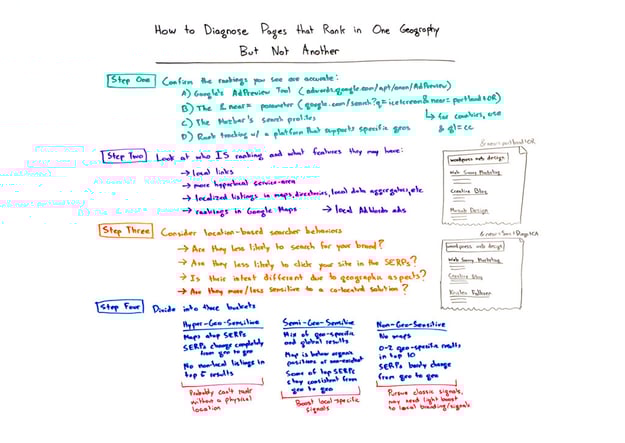 How to Diagnose Pages that Rank in One Geography
But Not Another
Step One Confirm the rankings you see are accurate:
A) Google's AdPreview Tool (adwords.google.com/apt/anon/AdPreview)
B) The & near= parameter (google.com/search?q=ice+cream&near=portland+OR)
C) The Mozbar's search profiles
↳ for countries, use
& gl=cc
D) Rank tracking w/ a platform that supports specific geos
Step Two Look at who IS ranking and what features they may have:
→ local links
→ more hyperlocal service-area
→ localized listings in maps, directories, local data aggregators, etc
→ rankings in Google Maps → local AdWords ads
&near=portland+OR
wordpress web design
Web Savvy Marketing
Creative Blog
Mozaik Design
Step Three Consider location-based searcher behaviors
→ Are they less likely to search for your brand?
→ Are they less likely to click your site in the SERPs?
→ Is their intent different due to geographic aspects?
→ Are they more/less sensitive to a co-located solution?
&near=San+Diego+CA
wordpress web design
Web Savvy Marketing
Creative Blog
Kristen Falkner
Step Four Divide into three buckets
Hyper-Geo-Sensitive
Maps atop SERPs
SERPs change completely
from geo to geo
No non-local listings in
top 5 results
Probably can't rank
without a physical
location
Semi-Geo-Sensitive
Mix of geo-specific
and global results
Map is below organic
positions or non-existent
Some of top SERPs
stay consistent from
geo to geo
Boost local-specific
signals
Non-Geo-Sensitive
No maps
0-2 geo-specific results
in top 10
SERPs barely change
from geo to geo
Pursue classic signals,
may need light boost
to local branding/signals